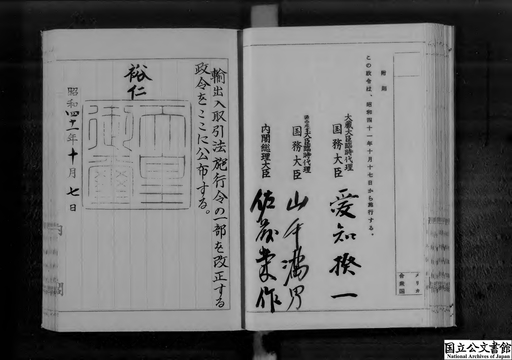 輸出入取引法施行令の一部を改正する
政令をここに公布する。
裕仁
天皇
御璽
昭和四十一年十月七日
附則
この政令は、昭和四十一年十月十七日から施行する。
大蔵大臣臨時代理
国務大臣 愛知揆一
通商産業大臣臨時代理
国務大臣
内閣総理大臣 佐藤榮作
国立公文書館
National Archives of Japan